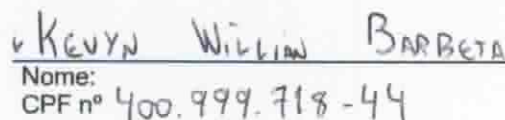 KEVYN WILLIAN BARBETA
Nome:
CPF nº 400.999.718-44